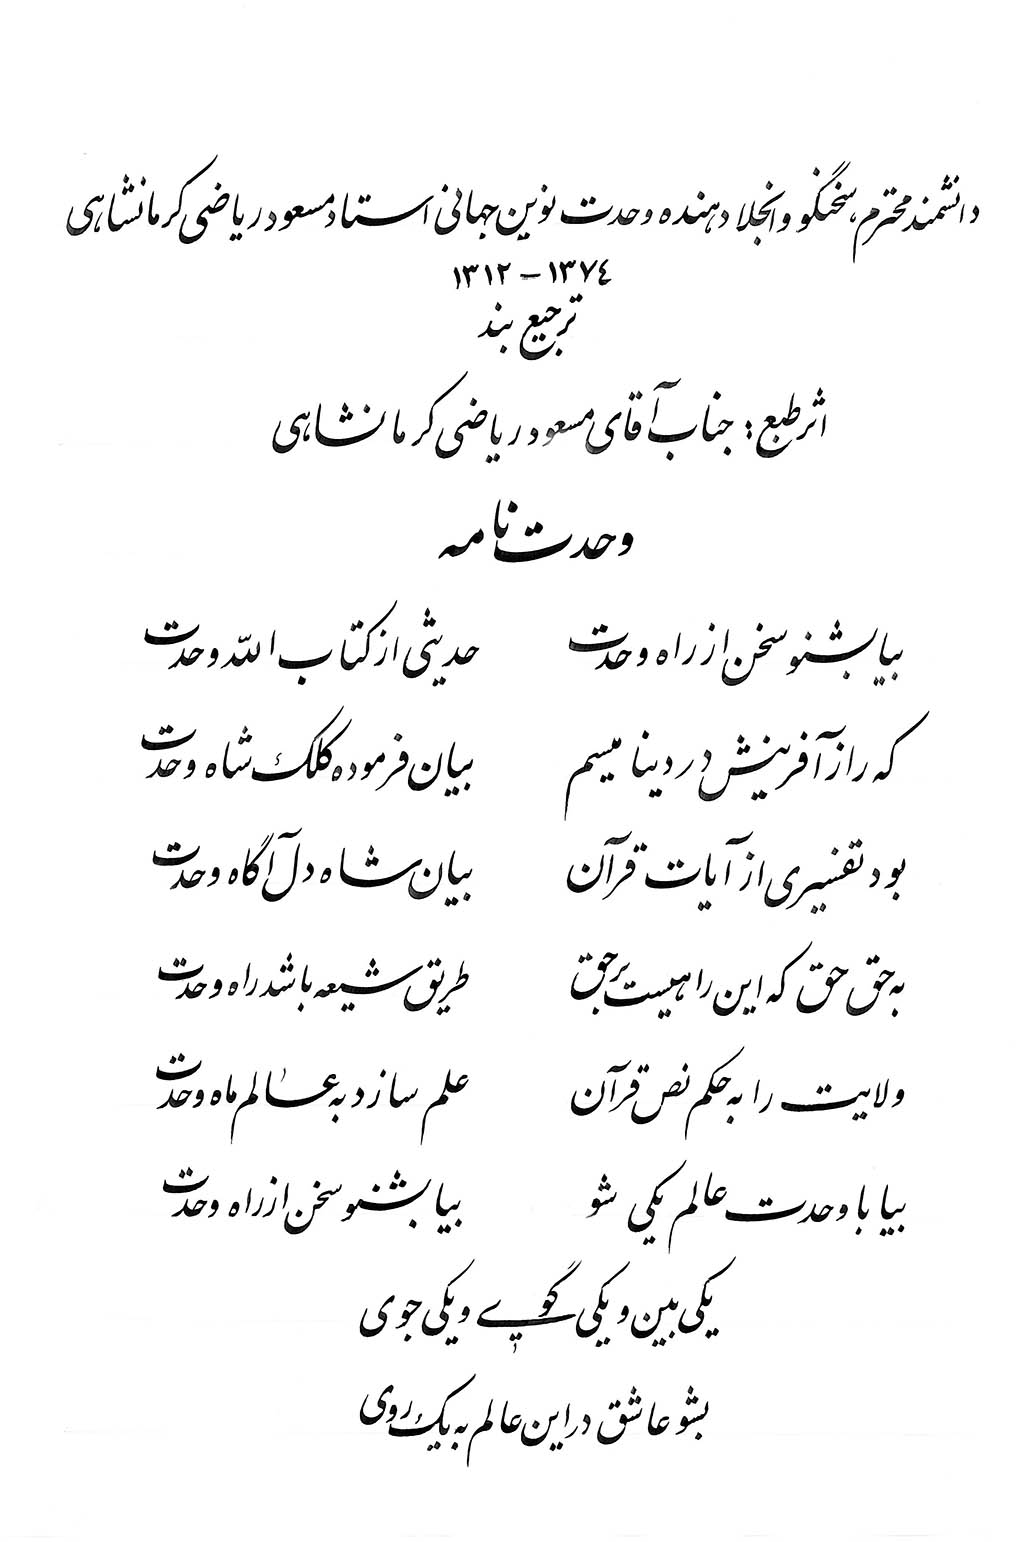 دانشمند محترم، سخنگو و انجلا دهنده وحدت نوین جهانی استاد مسعود ریاضی کرمانشاهی
۱۳۱۲ – ۱۳۷۴
ترجیع بند
اثر طبع : جناب آقای مسعود ریاضی کرمانشاهی
وحدت نامه
بیا بشنو سخن از راه وحدت حدیثی از کتاب الله وحدت
که راز آفرینش در دینا میسم بیان فرموده کلک شاه وحدت
بود تفسیری از آیات قرآن بیان شاه دل آگاه وحدت
به حق حق که این راهیست بر حق طریق شیعه باشد راه وحدت
ولایت را به حکم نص قرآن علم سازد به عالم ماه وحدت
بیا با وحدت عالم یکی شو بیا بشنو سخن از راه وحدت
یکی بین و یکی گوی و یکی جوی
بشو عاشق در این عالم به یک روی